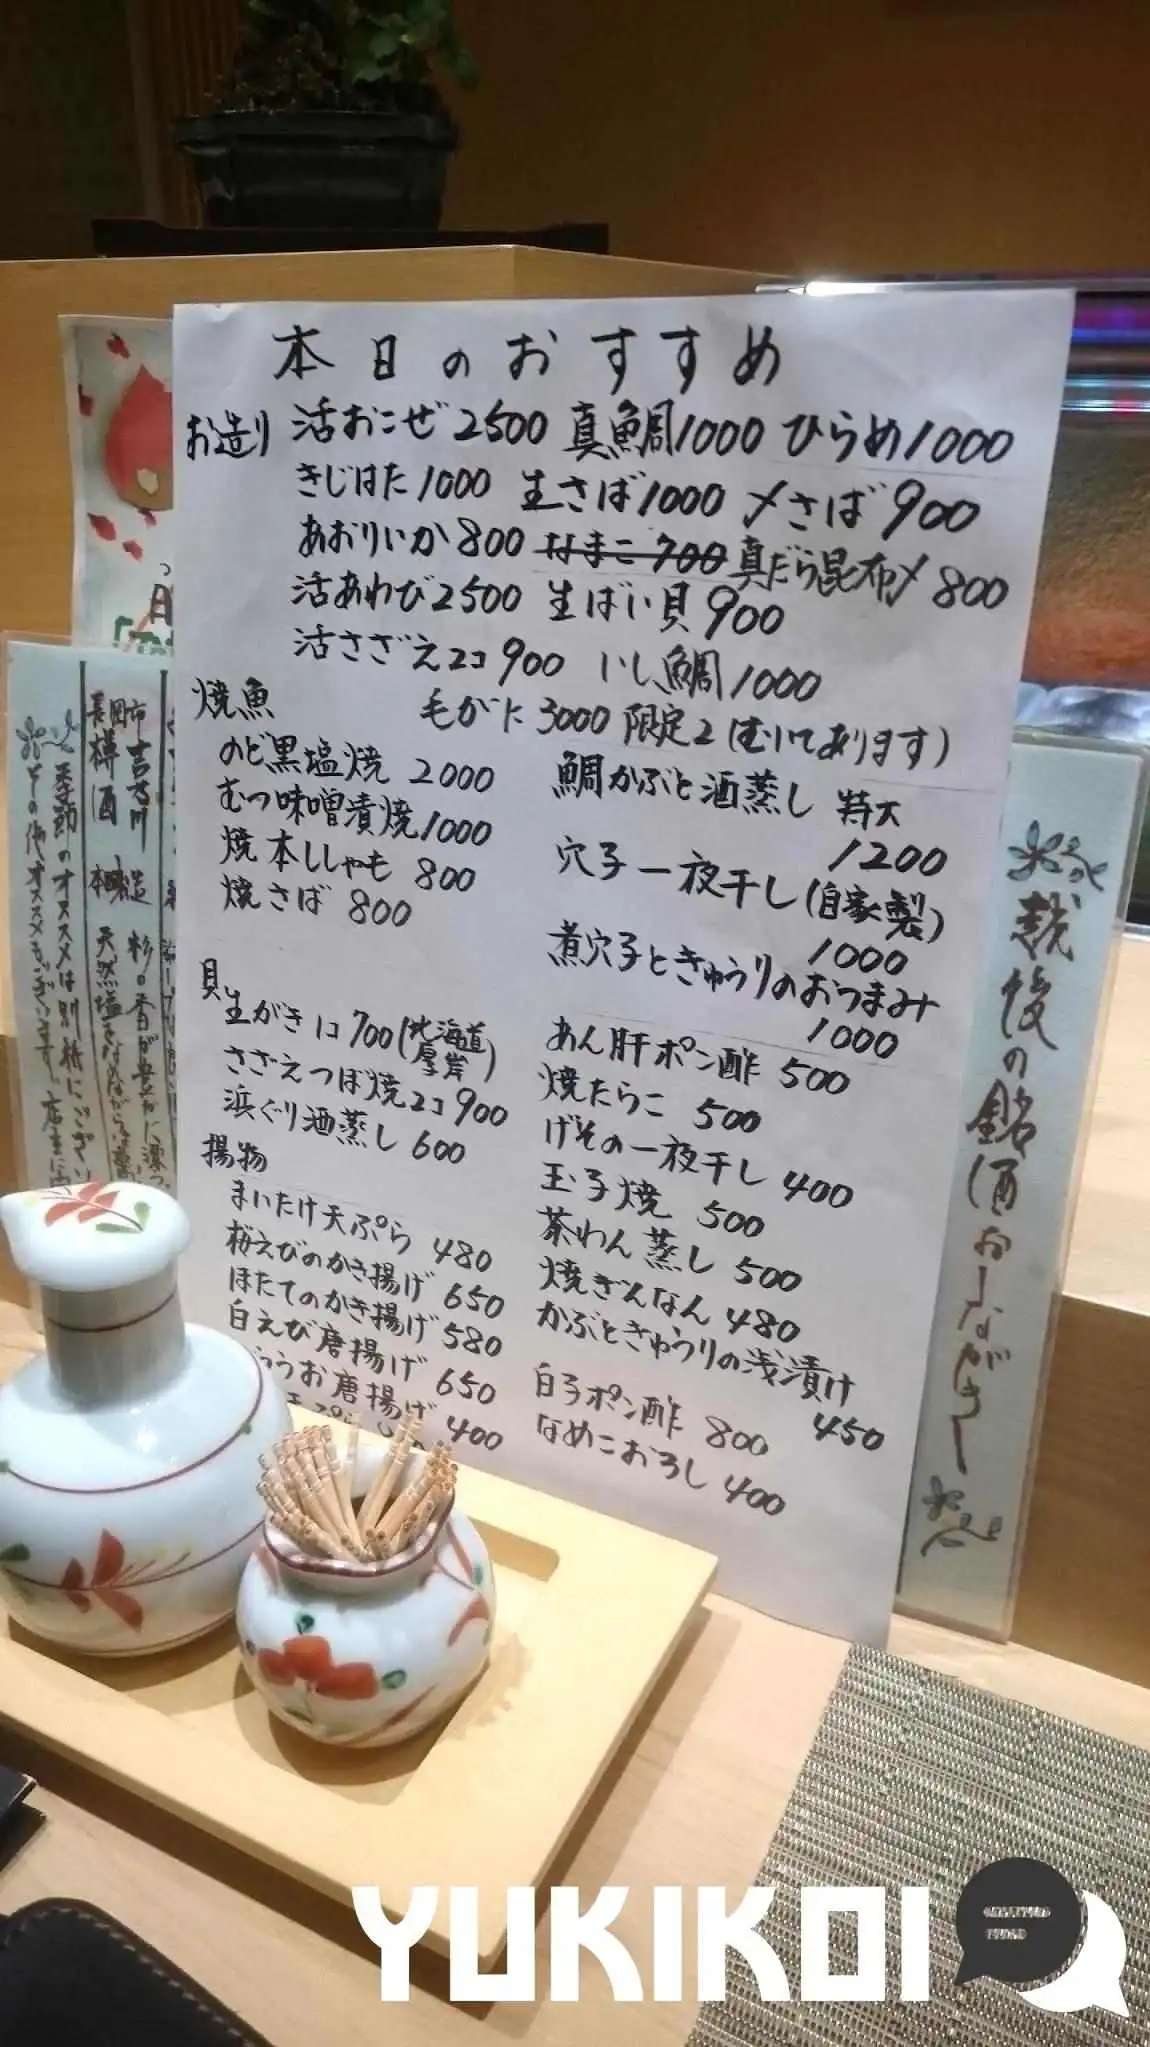 本日のおすすめ
お造り 活おこぜ2500 真鯛1000 ひらめ1000
きじはた1000 生さば1000 〆さば900
あおりいか800 なまこ700 真だら昆布〆800
活あわび2500 生ばい貝900
活さざえ2コ900 いし鯛1000
毛がに3000 限定2(むいてあります)
焼魚
のど黒塩焼 2000
むつ味噌漬焼1000
焼本ししゃも 800
焼さば 800
貝
生がき1コ700(北海道厚岸)
さざえつぼ焼2コ900
浜ぐり酒蒸し 600
揚物
まいたけ天ぷら 480
桜えびのかき揚げ 650
ほたてのかき揚げ 580
白えび唐揚げ 650
うお唐揚げ
400
鯛かぶと酒蒸し 特大
1200
穴子一夜干し(自家製)
1000
煮穴子ときゅうりのおつまみ
1000
あん肝ポン酢 500
焼たらこ 500
げその一夜干し 400
玉子焼 500
茶わん蒸し 500
焼ぎんなん 480
かぶときゅうりの浅漬け
450
白子ポン酢 800
なめこおろし 400
越後の銘酒おしながき
長岡市 吉乃川
樽酒
杉の香が豊かに
天然塩をなめながら
季節のオススメは別紙にござい
その他オススメもございます。店主に
YUKIKOI